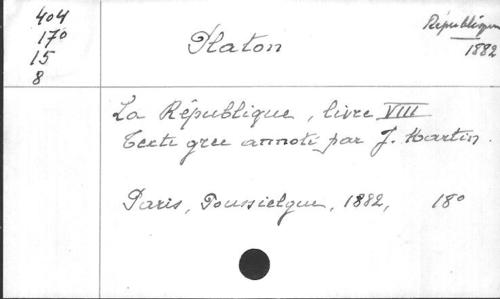 404
170
15
8
Platon
République
1882
La République, livre VIII
Texte grec annoté par J. Martin.
Paris, Poussielgue, 1882, 18°